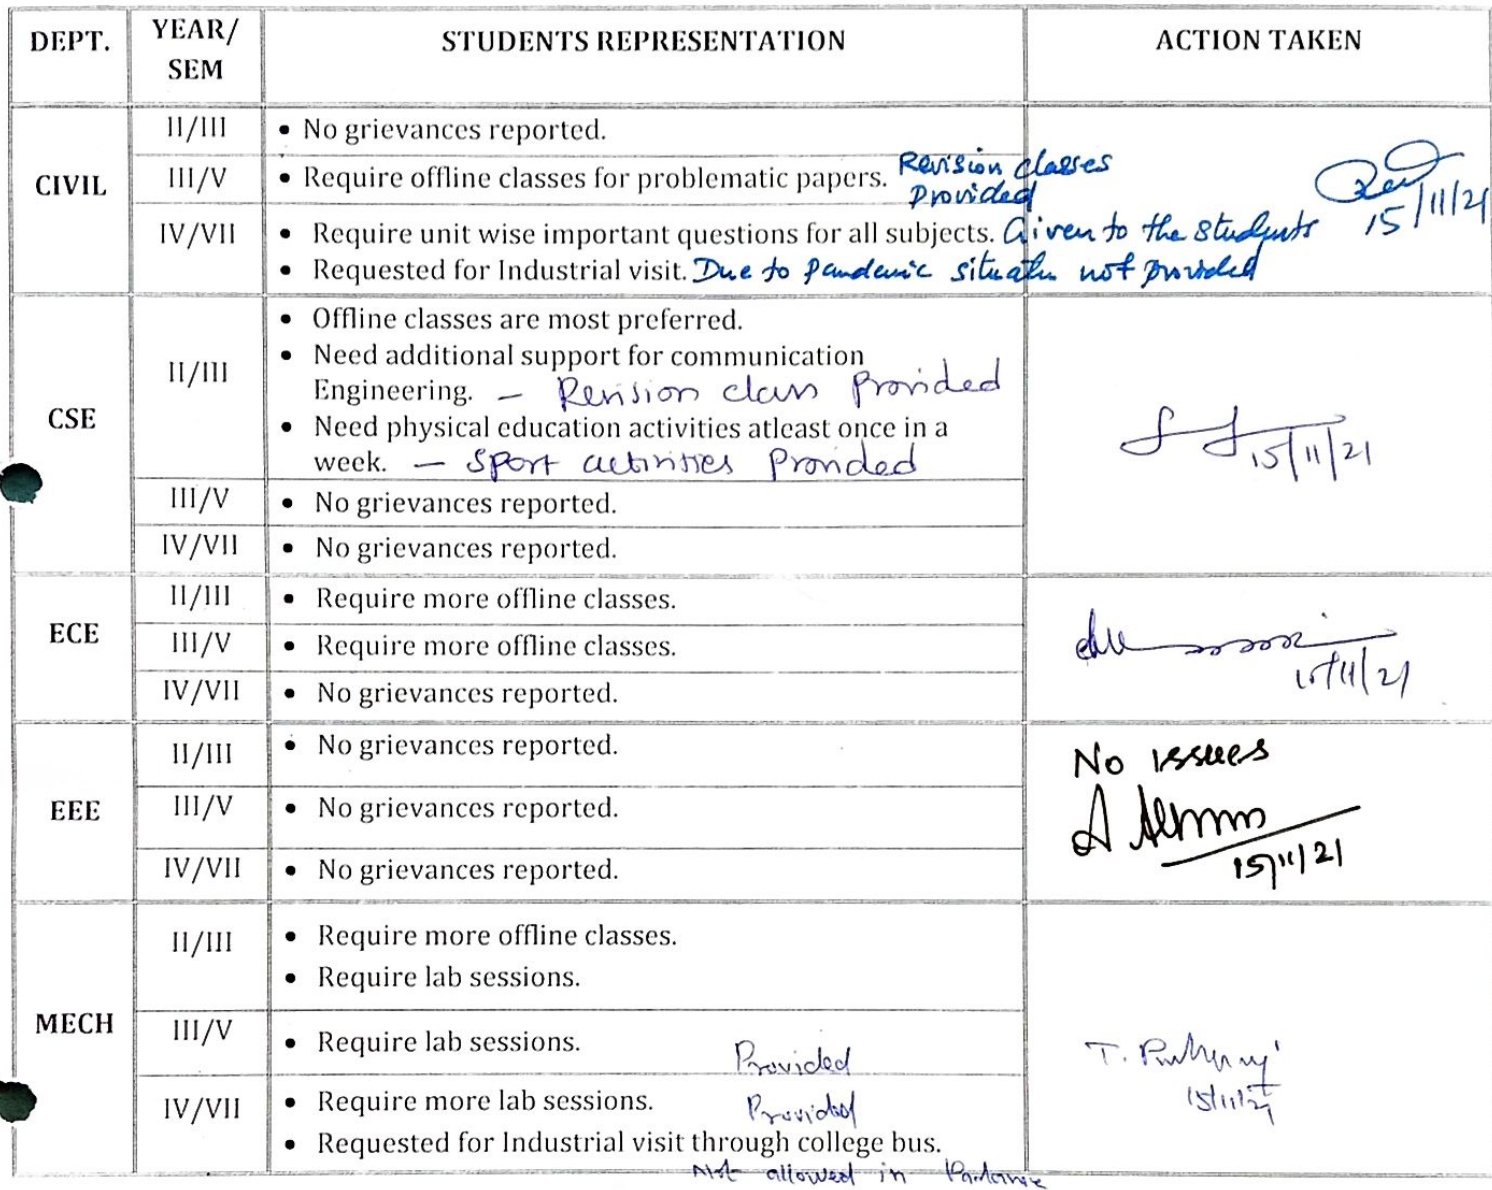 DEPT. YEAR/ SEM STUDENTS REPRESENTATION ACTION TAKEN
CIVIL
II/III • No grievances reported.
III/V • Require offline classes for problematic papers. Revision classes
Provided
15/11/21
IV/VII • Require unit wise important questions for all subjects. Given to the students
• Requested for Industrial visit. Due to pandemic situatn not provided
CSE
II/III • Offline classes are most preferred.
• Need additional support for communication
Engineering. – Revision class Provided
• Need physical education activities atleast once in a
week. – Sport activities Provided
15/11/21
III/V • No grievances reported.
IV/VII • No grievances reported.
ECE
II/III • Require more offline classes.
III/V • Require more offline classes.
15/11/21
IV/VII • No grievances reported.
EEE
II/III • No grievances reported.
No issues
III/V • No grievances reported.
IV/VII • No grievances reported.
15/11/21
MECH
II/III • Require more offline classes.
• Require lab sessions.
III/V • Require lab sessions. Provided
T.
15/11/21
IV/VII • Require more lab sessions. Provided
• Requested for Industrial visit through college bus.
Not allowed in